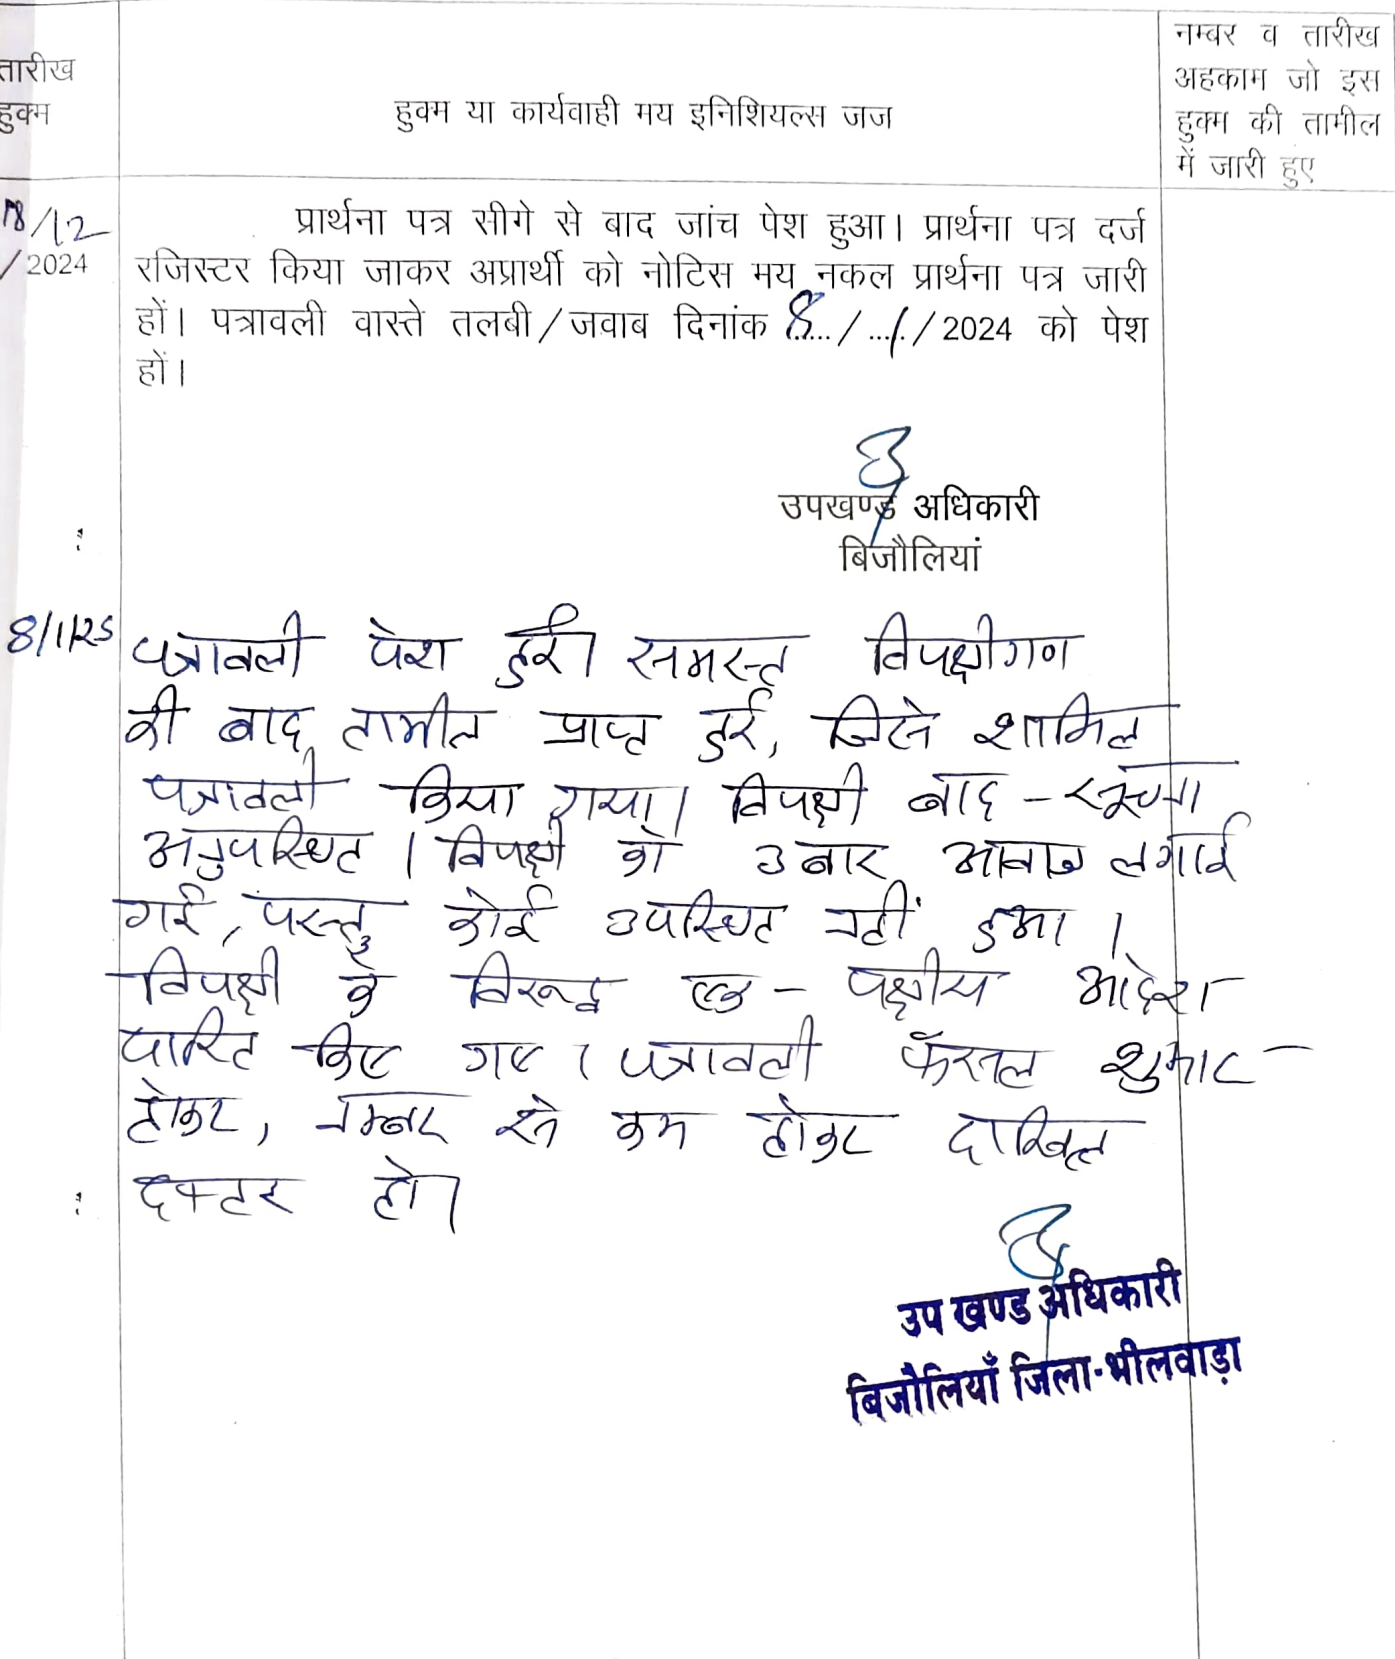 तारीख
हुक्म
हुक्म या कार्यवाही मय इनिशियल्स जज
नम्बर व तारीख
अहकाम जो इस
हुक्म की तामील
में जारी हुए
18/12
/2024
प्रार्थना पत्र सीगे से बाद जांच पेश हुआ। प्रार्थना पत्र दर्ज
रजिस्टर किया जाकर अप्रार्थी को नोटिस मय नकल प्रार्थना पत्र जारी
हों। पत्रावली वास्ते तलबी/जवाब दिनांक 8/1/2024 को पेश
हों।
उपखण्ड अधिकारी
बिजौलियां
8/1/25
पत्रावली पेश हुई। समस्त विपक्षीगण
की बाद तामील प्राप्त हुई, जिसे शामिल
पत्रावली किया गया। विपक्षी बाद - सूचना
अनुपस्थित। विपक्षी को 3 बार आवाज लगाई
गई, परन्तु कोई उपस्थित नहीं हुआ।
विपक्षी के विरूद्ध एक - पक्षीय आदेश
पारित किए गए। पत्रावली फैसल शुमार
होकर, नम्बर से कम होकर दाखिल
दफ्तर हो।
उप खण्ड अधिकारी
बिजौलियाँ जिला-भीलवाड़ा